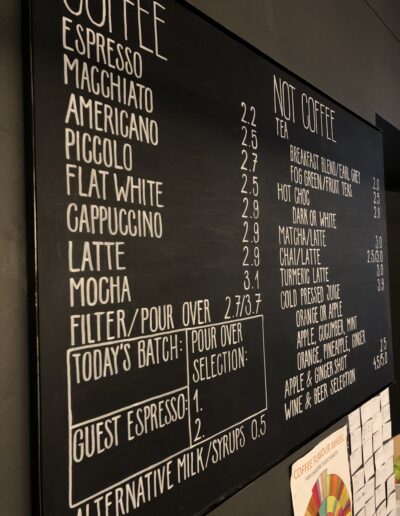 COFFEE
ESPRESSO 2.2
MACCHIATO 2.5
AMERICANO 2.7
PICCOLO 2.5
FLAT WHITE 2.9
CAPPUCCINO 2.9
LATTE 2.9
MOCHA 3.1
FILTER/POUR OVER 2.7/3.7
TODAY'S BATCH:
GUEST ESPRESSO:
POUR OVER
SELECTION:
1.
2.
ALTERNATIVE MILK/SYRUPS 0.5
NOT COFFEE
TEA
BREAKFAST BLEND/EARL GREY
FOG GREEN/FRUIT TEAS 2.5
HOT CHOC
DARK OR WHITE
MATCHA/LATTE 3.0
CHAI/LATTE 2.5/3.0
TURMERIC LATTE 3.0
COLD PRESSED JUICE 3.9
ORANGE OR APPLE
APPLE, CUCUMBER, MINT
ORANGE, PINEAPPLE, GINGER
APPLE & GINGER SHOT 2.5
WINE & BEER SELECTION 4.5/5.0
COFFEE FLAVOUR WHEEL